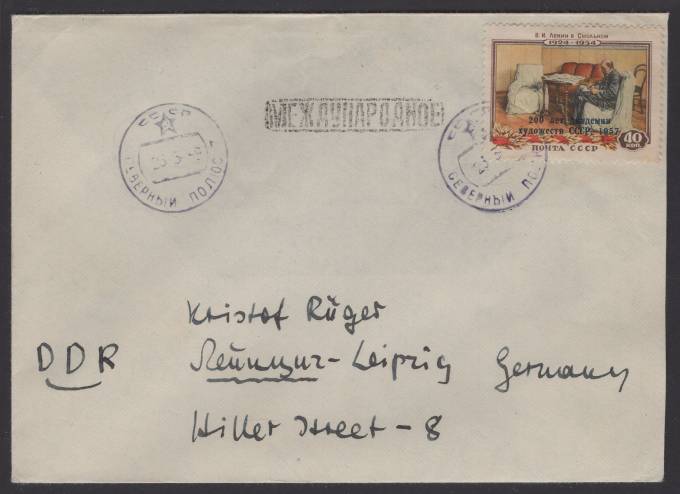 В. И. Ленин в Смольном
1924-1954
200 лет Академии
художеств СССР. 1957
ПОЧТА СССР
40
КОП.
МЕЖДУНАРОДНОЕ
СССР
СЕВЕРНЫЙ ПОЛЮС
СЕВЕРНЫЙ ПОЛЮС
Kristof Rüger
DDR Лейпциг-Leipzig Germany
Hiller Street-8